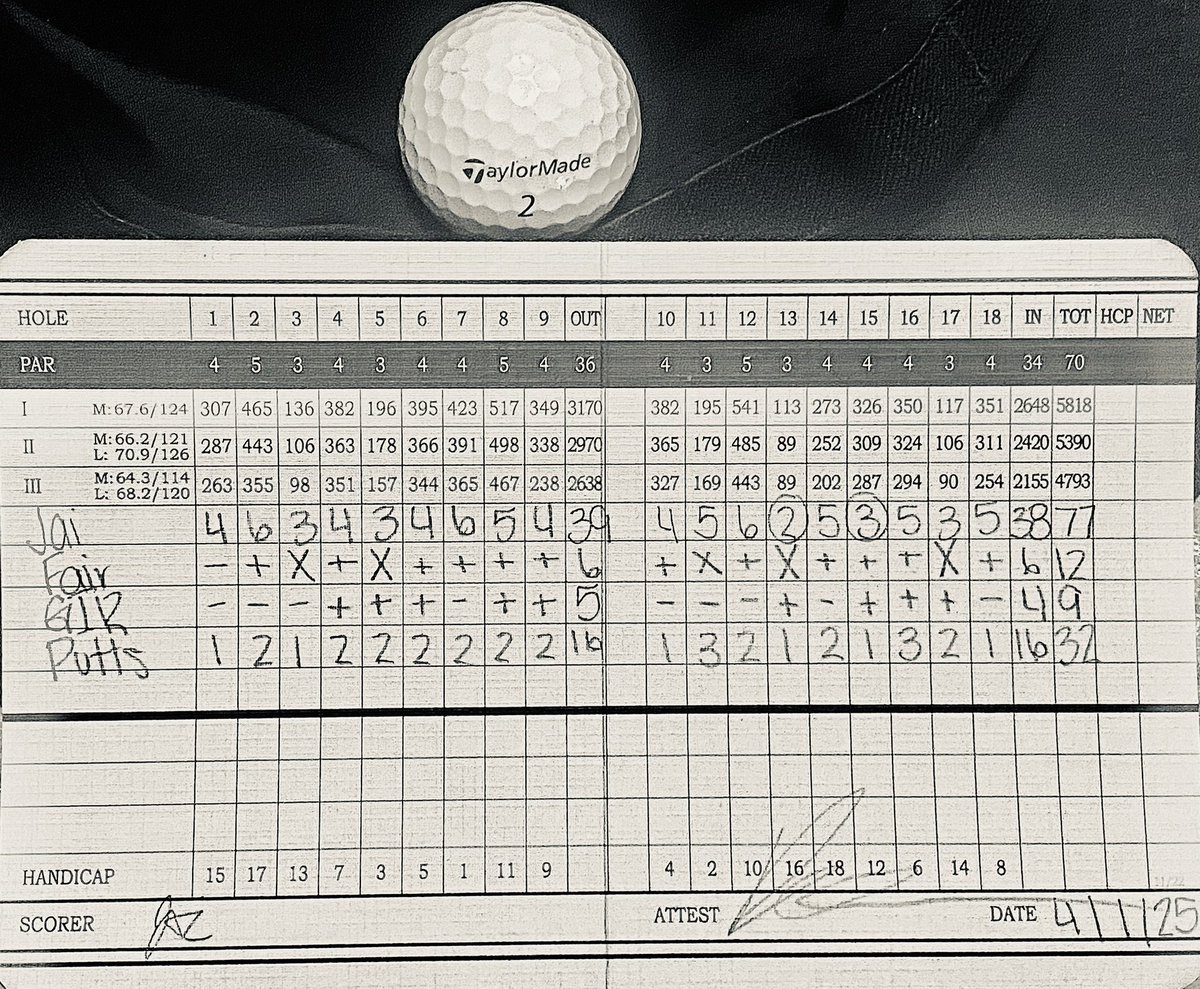 TaylorMade
2
HOLE 1 2 3 4 5 6 7 8 9 OUT 10 11 12 13 14 15 16 17 18 IN TOT HCP NET
PAR 4 5 3 4 3 4 4 5 4 36 4 3 5 3 4 4 4 3 4 34 70
I M:67.6/124 307 465 136 382 196 395 423 517 349 3170 382 195 541 113 273 326 350 117 351 2648 5818
II M:66.2/121 L: 70.9/126 287 443 106 363 178 366 391 498 338 2970 365 179 485 89 252 309 324 106 311 2420 5390
III M:64.3/114 L: 68.2/120 263 355 98 351 157 344 365 467 238 2638 327 169 443 89 202 287 294 90 254 2155 4793
Jai 4 6 3 4 3 4 6 5 4 39 4 5 6 2 5 3 5 3 5 38 77
Fair - + X + X + + + + 6 + X + X + + + X + 6 12
GIR - - - + + + - + + 5 - - - + - + + + - 4 9
Putts 1 2 1 2 2 2 2 2 2 16 1 3 2 1 2 1 3 2 1 16 32
HANDICAP 15 17 13 7 3 5 1 11 9 4 2 10 16 18 12 6 14 8
SCORER ATTEST DATE 4/1/25